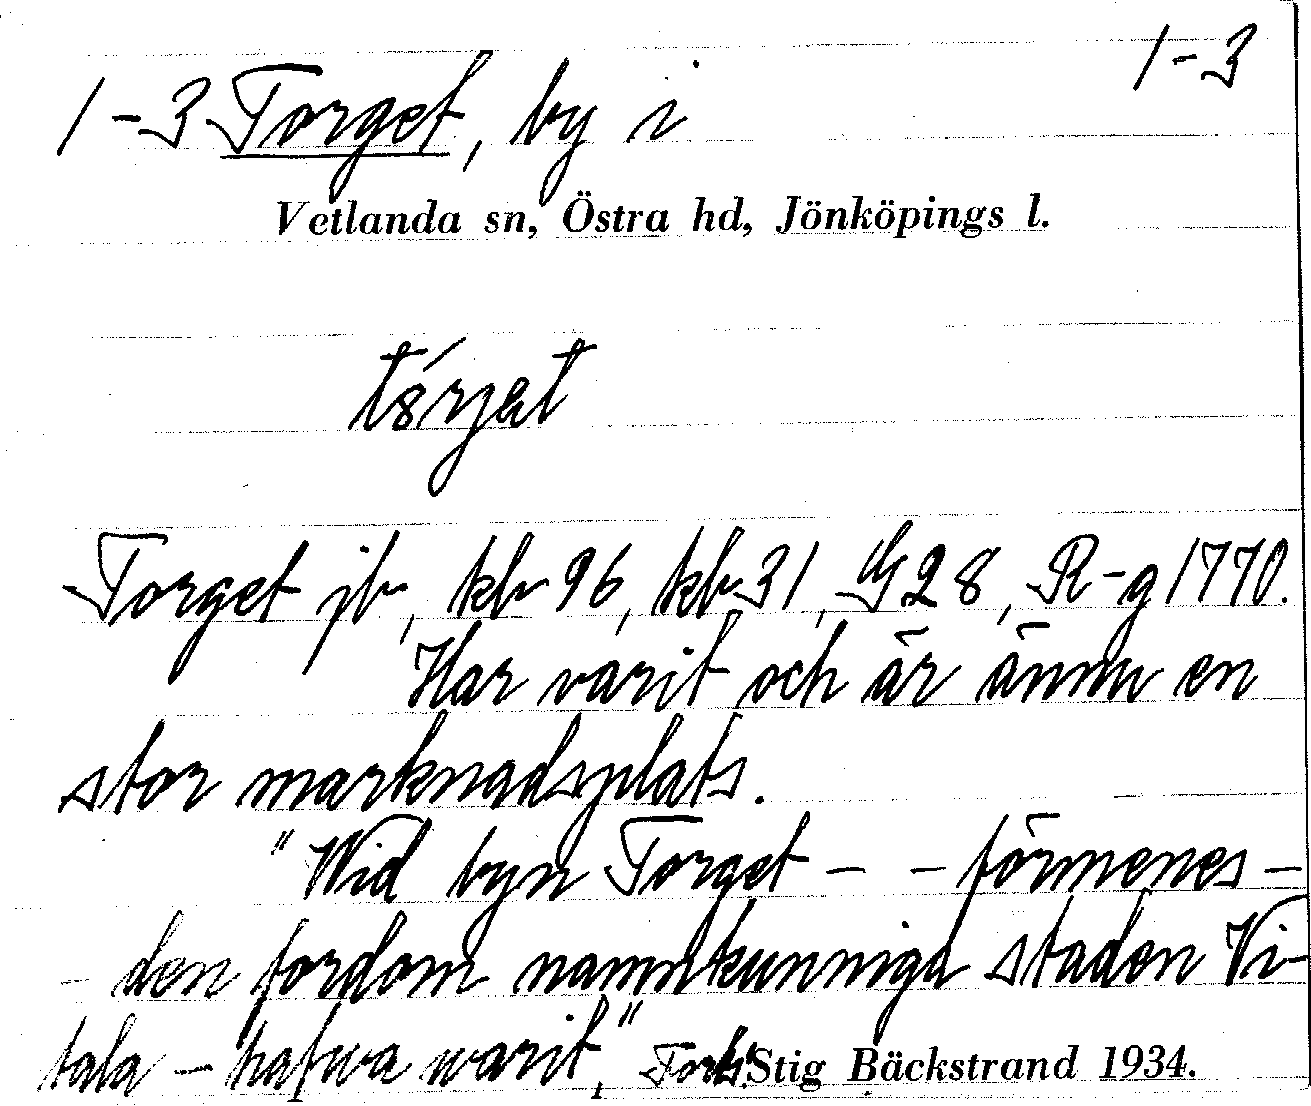 1-3
1-3 Torget, by i
Vetlanda sn, Östra hd, Jönköpings l.
Torget jb, kb 96, kb 31, G 28, R-g 1770.
Har varit och är ännu en
stor marknadsplats.
"Wid byn Torget - - förmenes -
- den fordom namnkunniga staden Vi-
tala - hafwa warit,"
Stig Bäckstrand 1934.